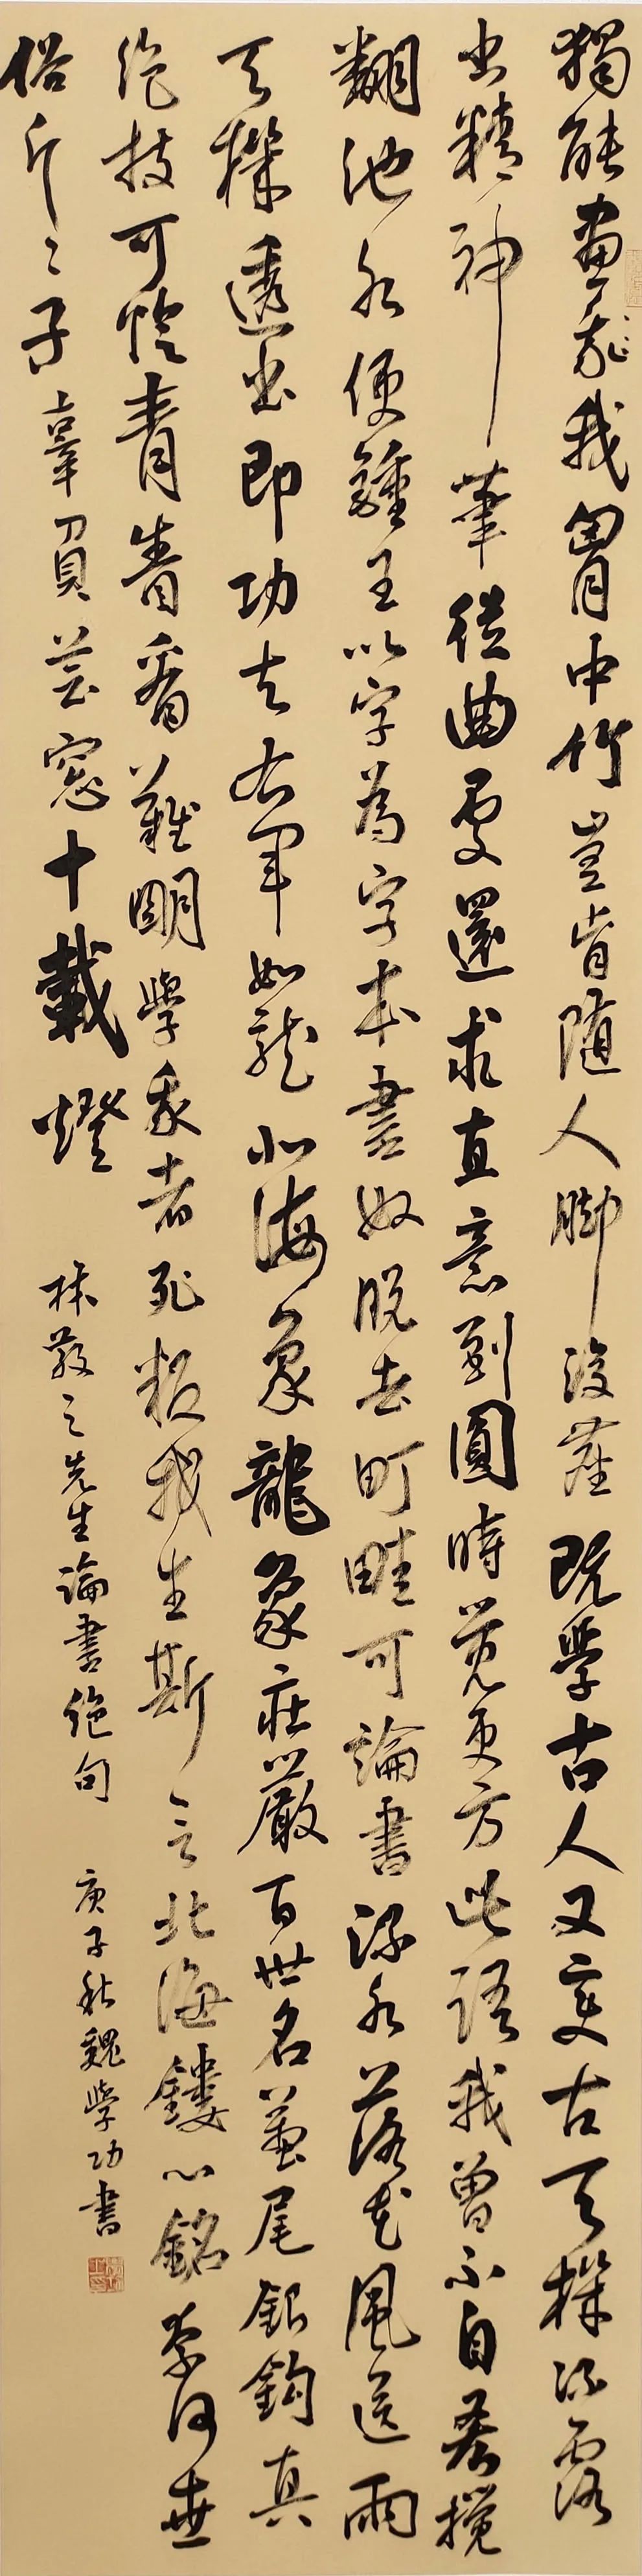 獨能畫我胸中竹豈肯隨人脚後塵既學古人又變古天機流露
出精神筆從曲處還求直意到圓時覺更方此語我曾不自吝攪
翻池水便鍾王以字為字本書奴脫去町畦可論書流水落花風送雨
天機透出即功夫右軍如龍北海象龍象莊嚴百世名蠆尾銀鉤真
絕技可憐青眼看難明學我者死叛我生斯言北海鏤心銘奈何世
俗斤々子辜負芸窓十載燈
林散之先生論書絕句 庚子秋魏學功書